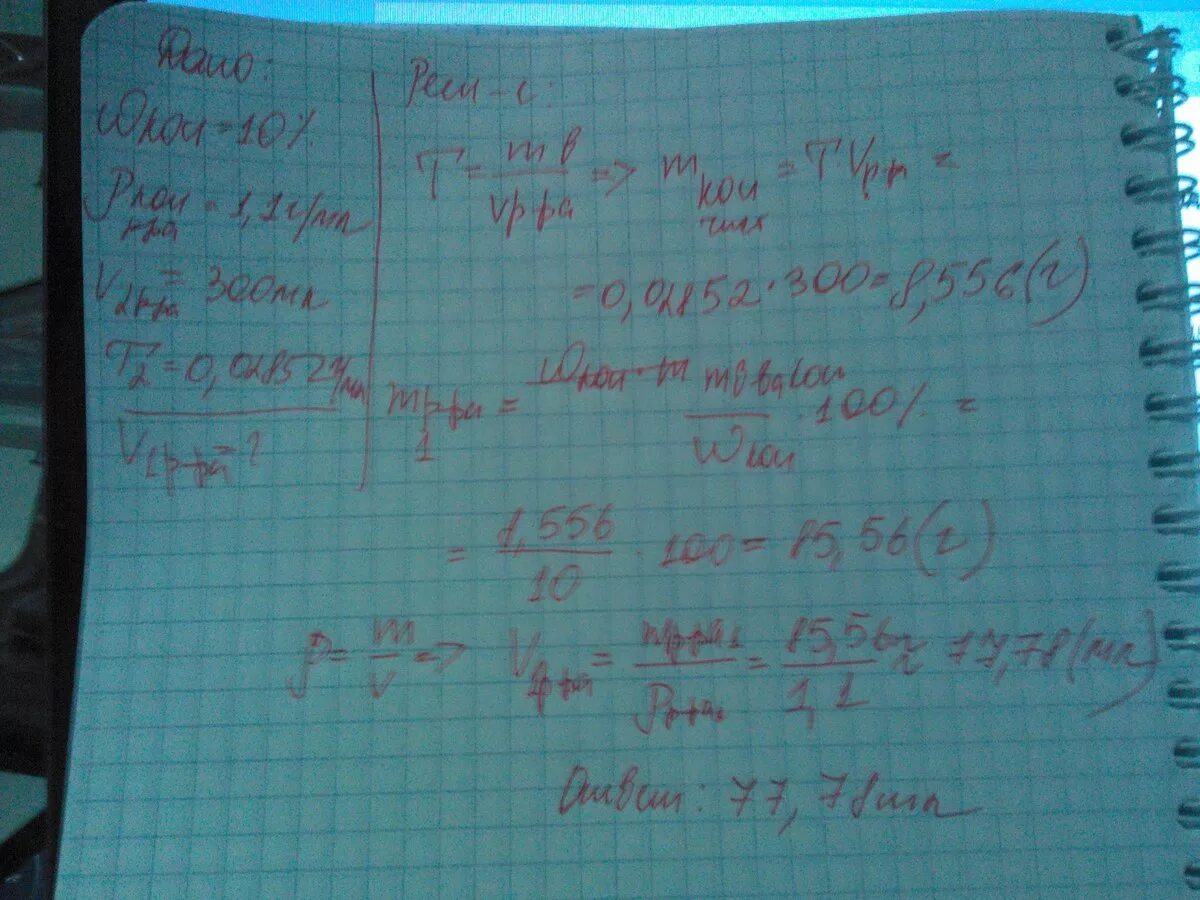 Дано:
ωкон = 10%
ρкон р-ра = 1,1 г/мл
V2р-ра = 300мл
T2 = 0,02852 г/мл
V1р-ра = ?
Реш-е:
T = mв / Vр-ра => mкон чист = T Vр-р =
= 0,02852 · 300 = 8,556 (г)
mр-ра 1 = mв-ва кон / ωкон · 100% =
= 8,556 / 10 · 100 = 85,56 (г)
ρ = m / V => V1р-ра = mр-ра1 / ρр-ра = 85,56 / 1,1 ≈ 77,78 (мл)
Ответ: 77,78мл